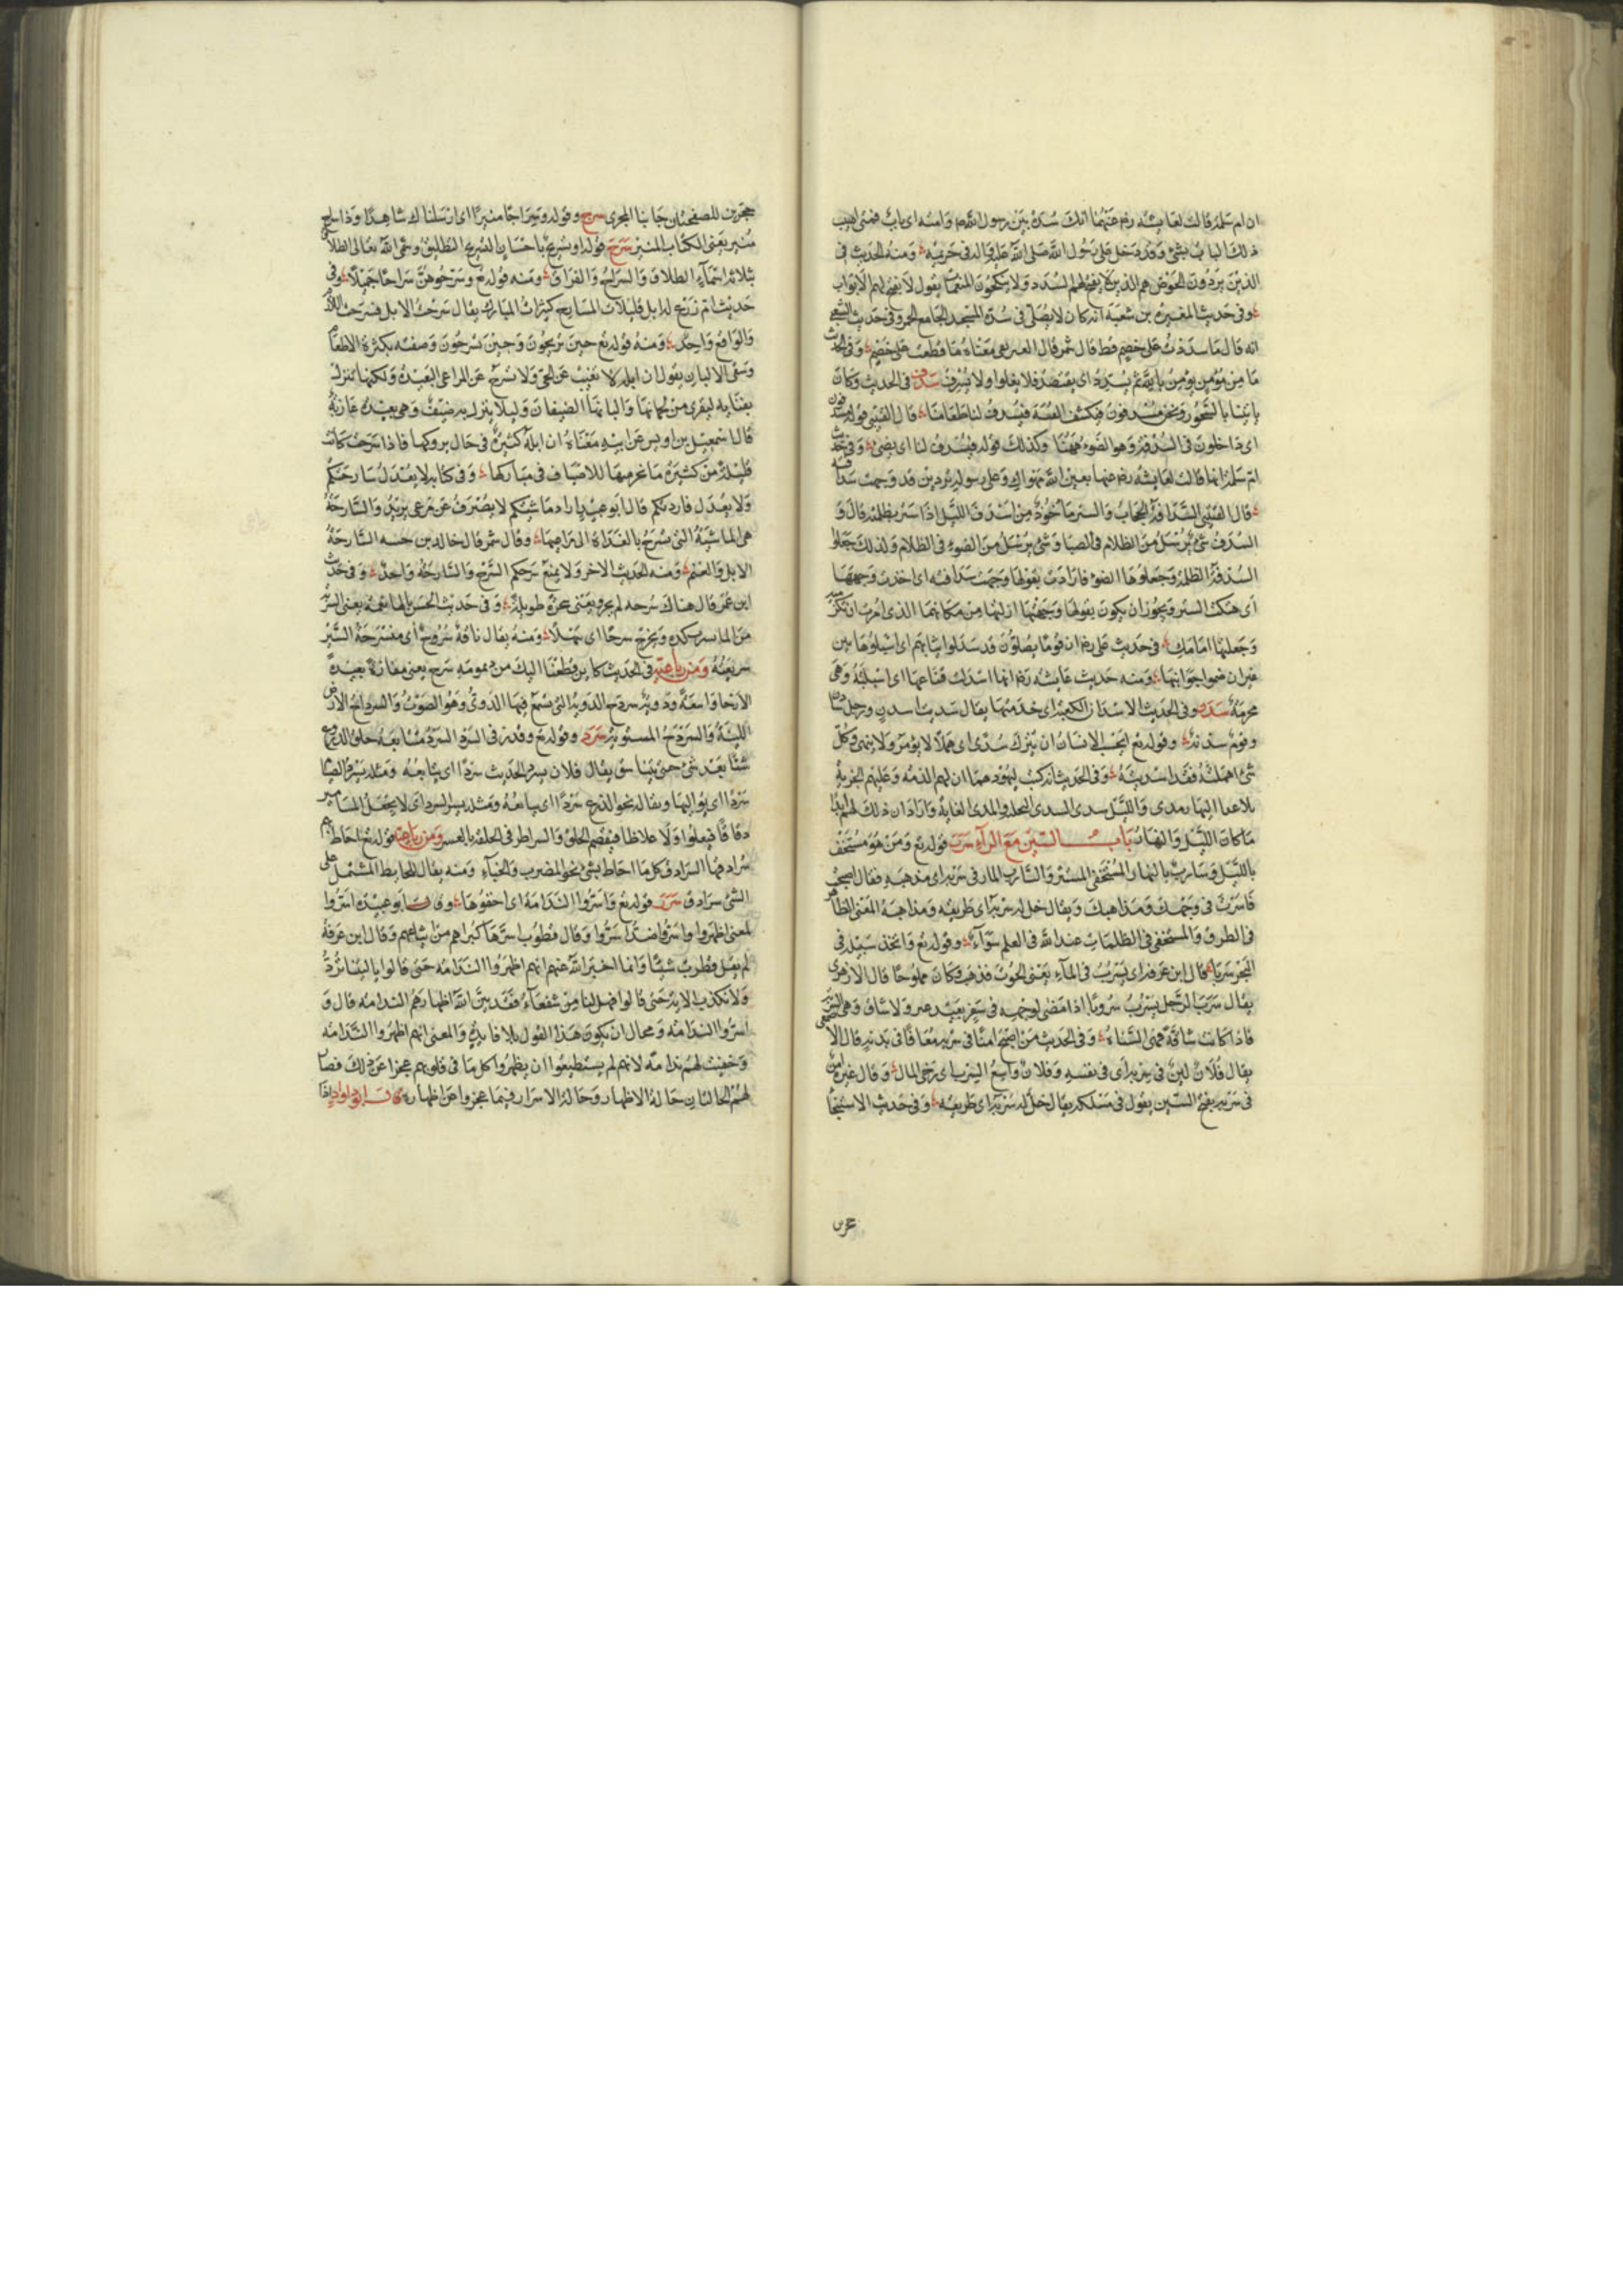 ان ام سلمة قالت لعايشه رضى عنهما انك سُدة بين رسول الله صم وامته اى باب فمتى اصيب
ذلك الباب بشئ فقد دخل على رسول الله صلى الله عليه واله فى حريمه ومنه الحديث فى
الذين يردون الحوض هم الذين لا يفتح لهم السدد ولا ينكحون المنعمات يقول لا يفتح لهم الابواب
وفى حديث المغيره بن شعبة انه كان لا يصلى فى سدة المسجد الجامع وفى حديث الشعبى
انه قال ما سددت على خصم قط قال شمر قال العتريفى معناه ما قطعت على خصم وفى الحديث
ما من مؤمن يؤمن بالله ثم يسدد اى يقتصد فلا يغلوا ولا يسرف سدف فى الحديث وكان
ياتينا بالسحور ونحن مسدفون فيكشف القبة فيسدف لنا طعامنا قال القتيبى قوله مسدفون
اى داخلون فى السدفة وهو الضوء ههنا وكذلك قوله فيسدف لنا اى يضئ وفى حديث
ام سلمة انها قالت لعايشه رضى عنهما بعين الله مهواك وعلى رسوله تردين قد وجهت سدافته
قال القتيبى السدافة الحجاب والستر ماخوذ من اسدف الليل اذا ستر بظلمته قال و
السدف شئ يرسل من الظلام فى الضيا وشئ يرسل من الضوء فى الظلام ولذلك جعلوا
السدفة الظلمة وجعلوها الضوء فارادت بقولها وجهت سدافته اى اخذت وجهها
اى هتك الستر ويجوز ان يكون بقولها وجهتها ازلتها من مكانها الذى امرت ان تلزميه
وجعلتها امامك فى حديث على رضى ان قوما يصلون قد سدلوا ثيابهم اى اسبلوها من
غيران ضموا جوانبها ومنه حديث عايشه رضى انها اسدلت قناعها اى اسبلته وهى
محرمة سدن وفى الحديث الا سدانة الكعبة اى خدمتها يقال سدنت اسدن ورجل سادن
وقوم سدنة وقوله تع ايحسب الانسان ان يترك سدى اى هملا لا يؤمر ولا ينهى وكل
شئ اهملته فقد اسديته وفى الحديث انه كتب ليهود تيما ان لهم الذمة وعليهم الجزية
بلا عدا النهار مدى والليل سدى السدى التخلية والمدى الغاية واراد ان ذلك لهم ابدا
ما كان الليل والنهار باب السين مع الراء سرب قوله تع ومن هو مستخف
بالليل وسارب بالنهار المستخفى المستتر والسارب المار فى سربه اى مذهبه فقال اصبحت
فاسرب فى وجهك ومذاهبك ويقال خل له سربه اى طريقه ومذاهبه المعنى الظاهر
فى الطرق والمستخفى فى الظلمات عند الله فى العلم سواء وقوله تع واتخذ سبيله فى
البحر سربا قال ابن عرفة اى يسرب فى الماء يعنى الحوت فذهب وكان مملوحا قال الازهرى
يقال سرب الرجل يسرب سروبا اذا مضى لوجهه فى سفر بعيد ولا شاق وهى السربة
فاذا كانت شاقة فهى السبأة وفى الحديث من اصبح امنا فى سربه معافا فى بدنه قال الاصمعى
يقال فلان امن فى سربه اى فى نفسه وفلان واسع السرب اى رخى البال وقال غيره امن
فى سربه بفتح السين يقول فى مسلكه يقال خل له سربه اى طريقه وفى حديث الاستنجا
حجرين للصفحتان جانبا المجرى سرج وقوله وسراجا منيرا اى ارسلناك شاهدا وذا سراج
منير يعنى الكتاب المنير سرح قوله او تسريح باحسان التسريح التطليق وسمى الله تعالى الطلاق
بثلاثة اسماء الطلاق والسراح والفراق ومنه قوله تع وسرحوهن سراحا جميلا وفى
حديث ام زرع له ابل قليلات المسارح كثيرات المبارك يقال سرحت الابل فسرحت اللازم
والواقع واحد ومنه قوله تع حين تريحون وحين تسرحون وصفته بكثرة الاطعام
وسقى الالبان يقول ان ابله لا تغيب عن الحى ولا تسرح عن المراعى البعيدة ولكنها تنزل
بفنايه ليقرى من لحمانها والبانها الضيفان وليلا ينزل به ضيف وهى بعيده عازبة
قال اسمعيل بن اويس عن ابيه معناه ان ابله كثيرة فى حال بروكها فاذا سرحت كانت
قليلة من كثرة ما نحر منها للاضياف فى مباركها وفى كتابه لا يعدل سارحتكم
ولا يعدل فاردتكم قال ابو عبيد اراد ماشيتكم لا يصرف عن مرعى يزيد والسارحة
هى الماشية التى تسرح بالغداة الى مراعيها وقال شمر قال خالد بن جنبه السارحة
الابل والغنم ومنه الحديث الاخر ولا يمنع سرحكم السرح والسارحة واحد وفى حديث
ابن عمر قال هناك سرحه لم يجرد يعنى شجرة طويلة وفى حديث الحسن يالها نعمة يعنى الشربة
من الماء تشرب لذة وتخرج سرحا اى سهلا ومنه يقال ناقة سروح اى منسرحة السير
سريعته ومن رباعيه فى الحديث كاين قطعنا اليك من دمومه سربخ يعنى مفازة بعيدة
الارجا واسعة ودوية سربخ الدوية التى يسمع فيها الدوى وهو الصوت والسرداح الارض
اللينة والسردح المستوية سرد وقوله تع وقدر فى السرد السرد متابعة حلق الدرع
شيئا بعد شئ حتى يتناسق يقال فلان يسرد الحديث سردا اى يتابعه ومثله يسرد الصيام
سردا اى يواليها ويقال نحو الدرع سردا اى يتابعه وقدر السرد اى لا يجعل المسامير
دقاقا فيغلوا ولا غلاظا فيفصم الحلق والسراط فى الحلقة بالعسر ومن رباعيه قوله تع احاط بهم
سرادقها السرادق كل ما احاط بشئ نحو المضرب والخباء ومنه يقال للحايط المشتمل على
الشئ سرادق سرر قوله تع واسروا الندامة اى اخفوها وقال ابو عبيدة اسروا
بمعنى اظهروا واسروا ضد اسروا وقال قطرب اسرها كبراهم من تباعهم وقال ابن عرفة
لم يقل قطرب شيئا وانما اخبر الله عنهم انهم اظهروا الندامة حتى قالوا ياليتنا نرد
ولا نكذب الاية حتى قالوا فهل لنا من شفعاء فقد بين الله اظهارهم الندامة قال و
اسروا الندامة ومحال ان يكون هذا القول بلا فايدة والمعنى انهم اظهروا الندامة
وخفيت لهم ندامة لانهم لم يستطيعوا ان يظهروا كل ما فى قلوبهم عجزا عن ذلك فصار
لهم الحالتان حالة الاظهار وحالة الاسرار فيما عجزوا عن اظهاره